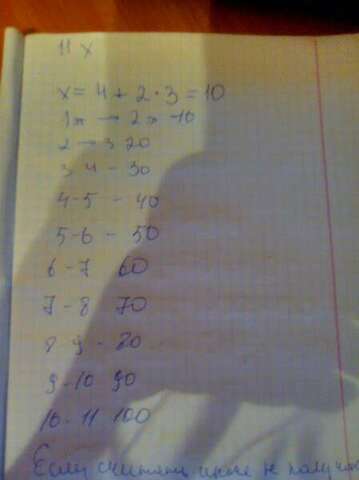 11 x
x = 4 + 2 · 3 = 10
1 э → 2 э - 10
2 → 3 20
3 4 - 30
4-5 - 40
5-6 - 50
6-7 60
7-8 70
8 9 - 80
9-10 90
10-11 100
Если считать иначе не получ